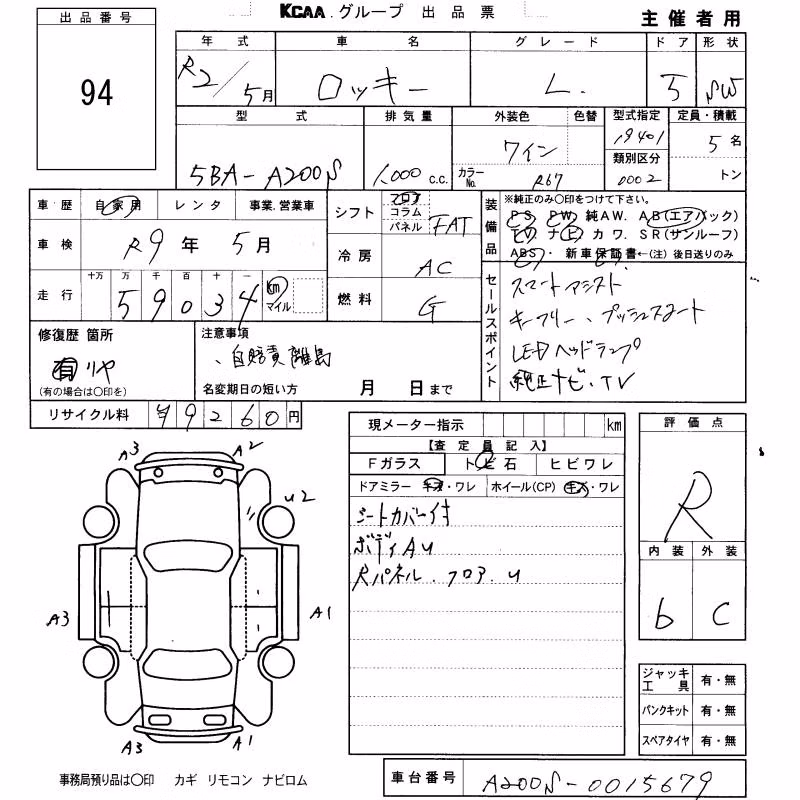 KCAA グループ 出品票
主催者用
出品番号
94
年式 車名 グレード ドア 形状
R2/5月 ロッキー L. 5 SW
型式 排気量 外装色 色替 型式指定 定員・積載
5BA-A200S 1,000 c.c. ワイン 19401 5名
カラーNo. R67 類別区分 0002 トン
車歴 自家用 レンタ 事業.営業車
車検 R9年 5月
走行 十万 万 千 百 十 一
59034 km マイル
シフト フロア コラム パネル FAT
冷房 AC
燃料 G
装備品 ※純正のみ〇印をつけて下さい。
PS PW 純AW. AB(エアバック)
TV ナビ カワ. SR(サンルーフ)
ABS・ 新車保証書←(注)後日送りのみ
セールスポイント
スマートアシスト
キーフリー、プッシュスタート
LEDヘッドランプ
純正ナビ・TV
修復歴 箇所
有 リヤ
(有の場合は〇印を)
注意事項
、自賠責離島
名変期日の短い方 月 日まで
リサイクル料 ¥9260円
現メーター指示 km
【査定員記入】
Fガラス トビ石 ヒビワレ
ドアミラー キズ・ワレ ホイール(CP) キズ・ワレ
シートカバー付
ボディAU
Rパネル.フロア.U
評価点
R
内装 外装
b C
A3 A2
U2
A3 A1
A3 A1
ジャッキ工具 有・無
パンクキット 有・無
スペアタイヤ 有・無
事務局預り品は〇印 カギ リモコン ナビロム
車台番号 A200S-0015679